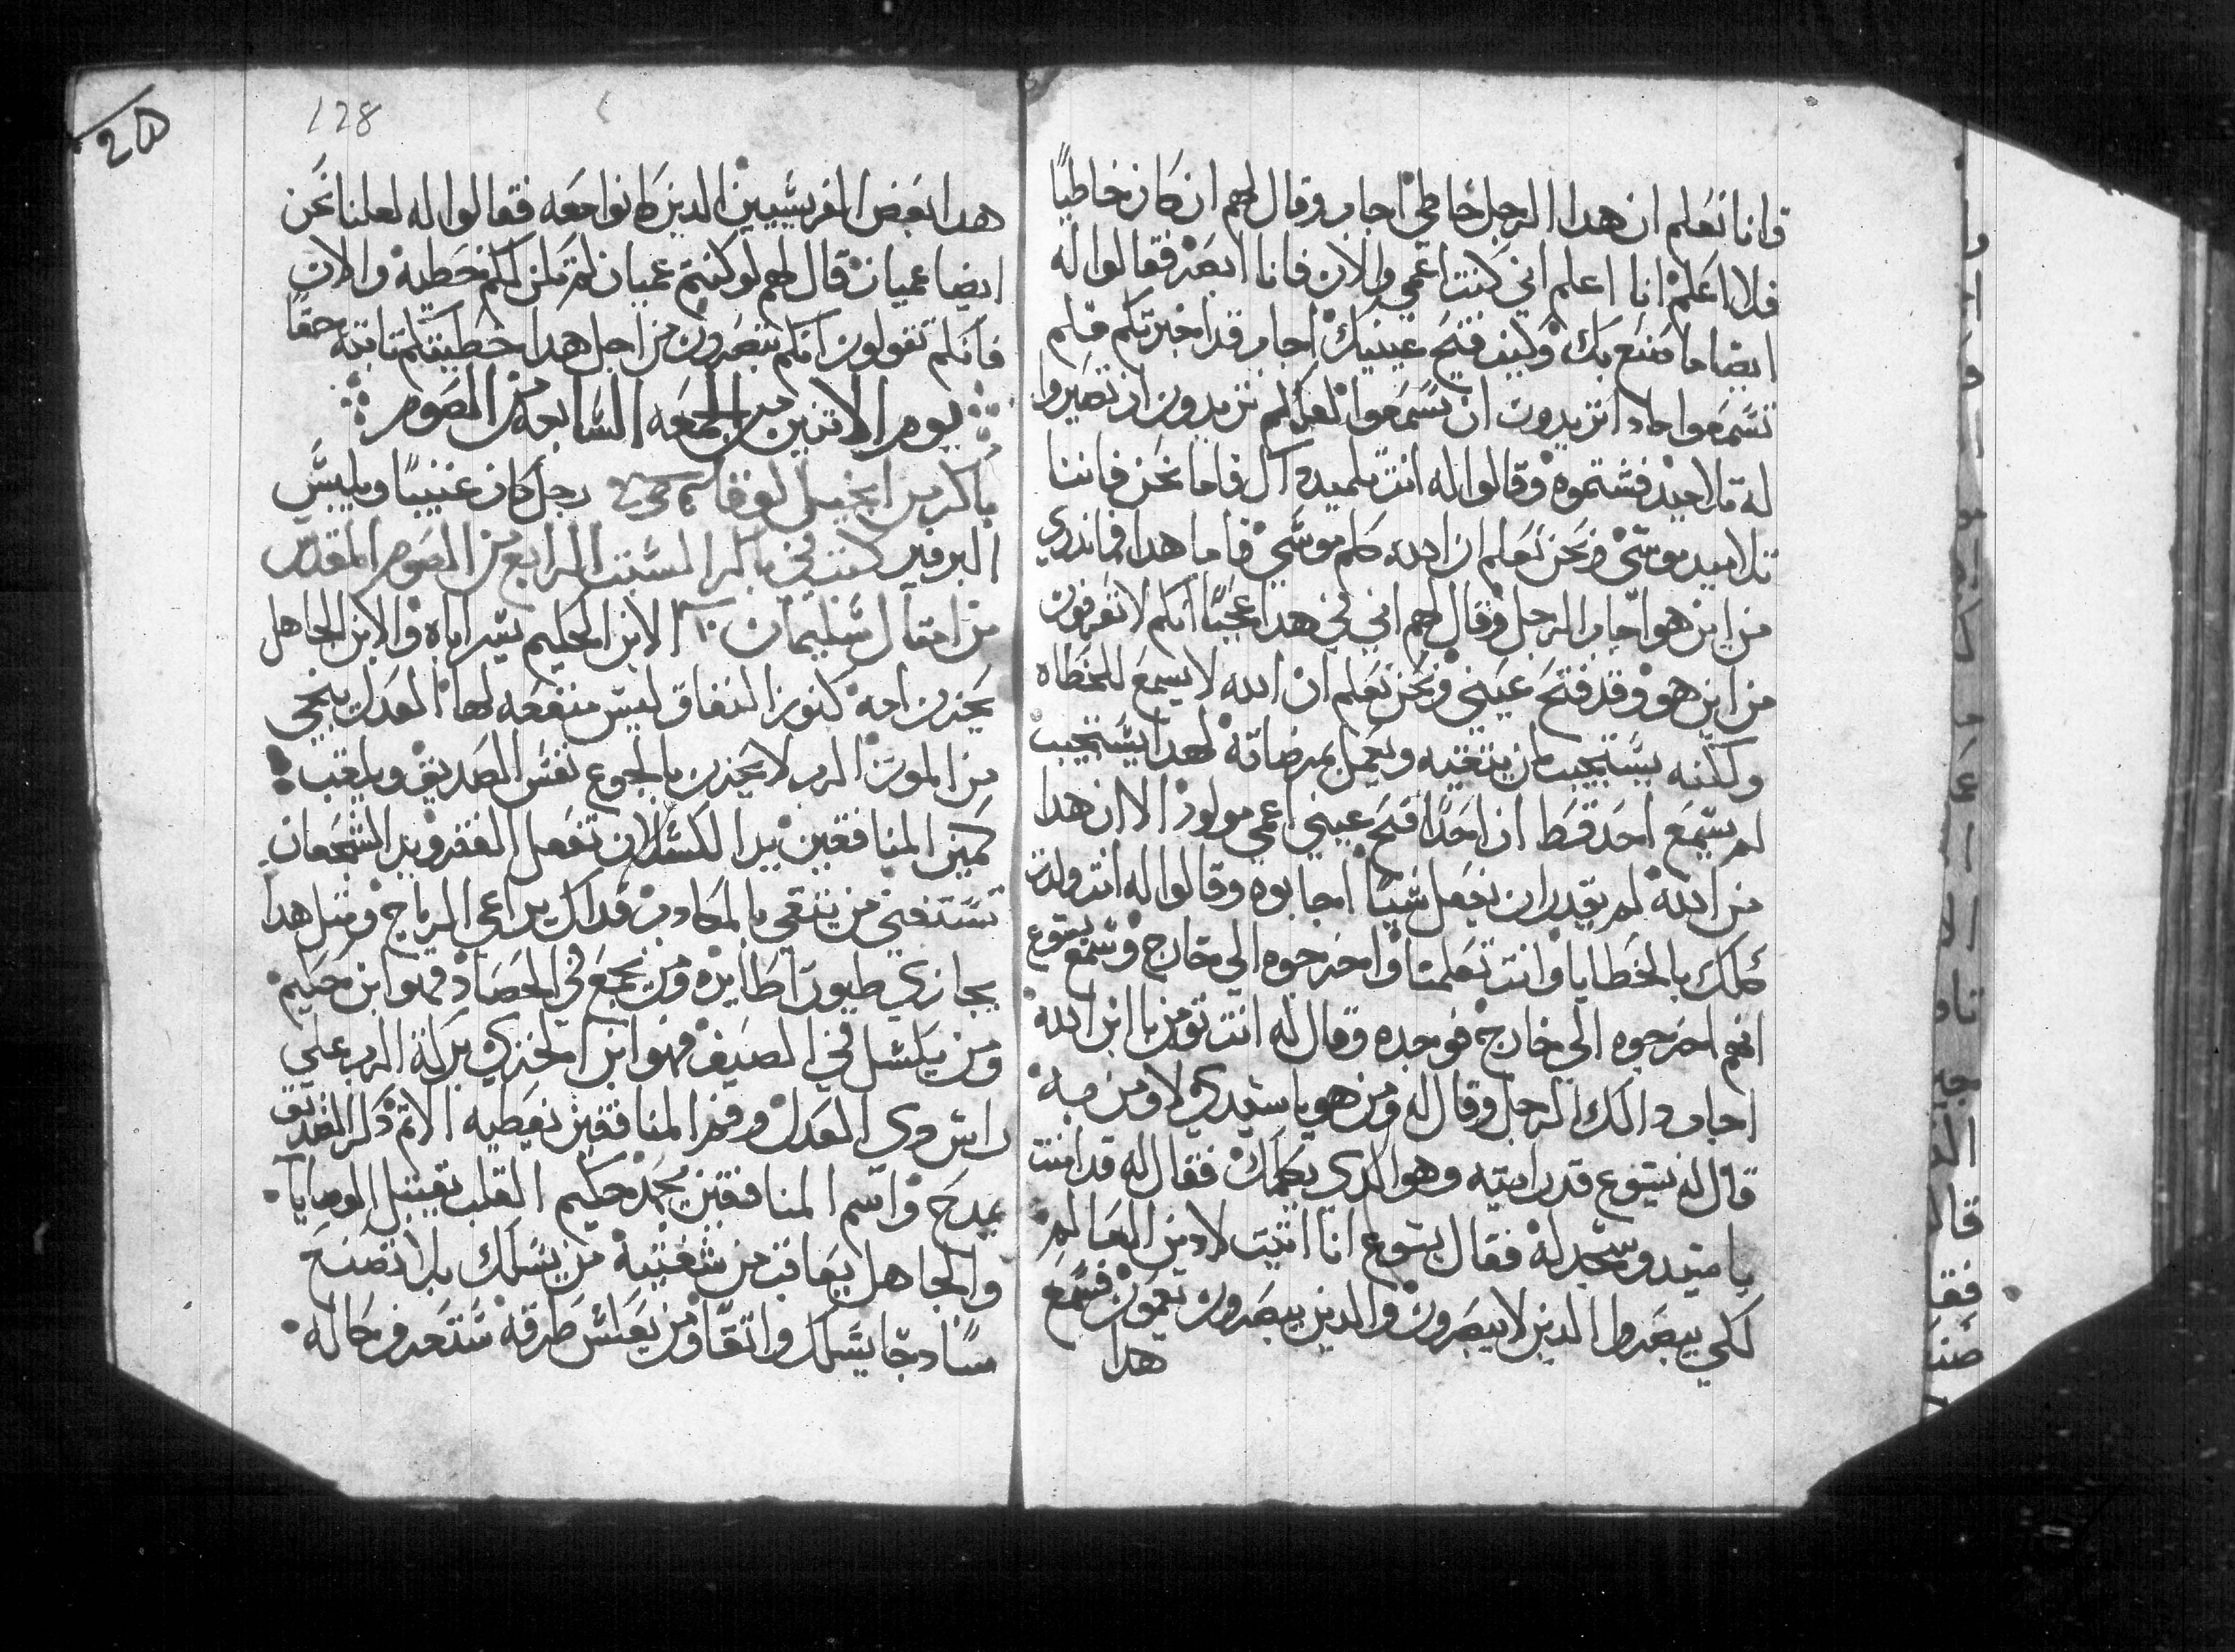 فانا نعلم ان هدا الرجل خاطي اجاب وقال لهم ان كان خاطيًا
فلا اعلم انا اعلم اني كنت اعمي والان فانا ابصر فقالوا له
ايضا ما صنع بك وكيف فتح عينيك اجاب قد اخبرتكم فلم
تسمعوا مادا تريدون ان تسمعوا لعلكم تريدون ان تصيروا
له تلاميد فشتموه وقالوا له انت تلميد داك فاما نحن فاننا
تلاميد موسي ونحن نعلم ان الله كلم موسي فاما هدا فما ندري
من اين هو اجاب الرجل وقال لهم اني في هدا عجبًا انكم لا تعرفون
من اين هو وقد فتح عيني ونحن نعلم ان الله لا يسمع للخطاه
ولكنه يستجيب لمن يتقيه ويعمل بمرضاته لهدا يستجيب
لم يسمع احد قط ان احدًا فتح عيني اعمي مولود الا ان هدا
من الله لم يقدر ان يفعل شيًا اجابوه وقالوا له انت ولدت
كلك بالخطايا وانت تعلمنا واخرجوه الي خارج وسمع يسوع
انهم اخرجوه الي خارج فوجده وقال له انت تومن بابن الله
اجاب دالك الرجل وقال له ومن هو يا سيدي لاومن به
قال له يسوع قد رايته وهو الدي يكلمك فقال له قد امنت
يا سيد وسجد له فقال يسوع انا اتيت لادين العالم
لكي يبصروا الدين لا يبصرون والدين يبصرون يعمون فسمع
هدا
128
هدا بعض الفريسيين الدين كانوا معه فقالوا له لعلنا نحن
ايضا عميان قال لهم لو كنتم عميان لم تكن لكم خطية والان
فانكم تقولون انكم تبصرون من اجل هدا خطيتكم ثابته حقًا
يوم الاتنين من الجمعه السابعه من الصوم
باكر من انجيل لوقا رجل كان غنيًا ويلبس
البرفير كتبت في باكر السبت الرابع من الصوم المقدس
من امتال سليمان الابن الحكيم يسر اباه والابن الجاهل
يحزن امه كنوز النفاق ليس منفعه لها العدل ينجي
من الموت الرب لا يحزن بالجوع نفس الصديق ويقلب
كمين المنافقين يد الكسلان تفعل الفقر ويد الشجعان
تستغني من يتقي بالمكادب فداك يراعي الرياح ومتل هدا
يجازي طيورًا طايره ومن يجمع في الحصاد فهو ابن حكيم
ومن يكسل في الصيف فهو ابن الخزي بركة الرب علي
راس دوي العدل وفم المنافقين يغطيه الاتم دكر الصديق
يمدح واسم المنافقين يخمد حكيم القلب يقبل الوصايا
والجاهل يعاقب من شفتيه من يسلك بلا تصنع
سادجًا يسلك واتقًا ومن يعكس طرقه ستعرف حاله